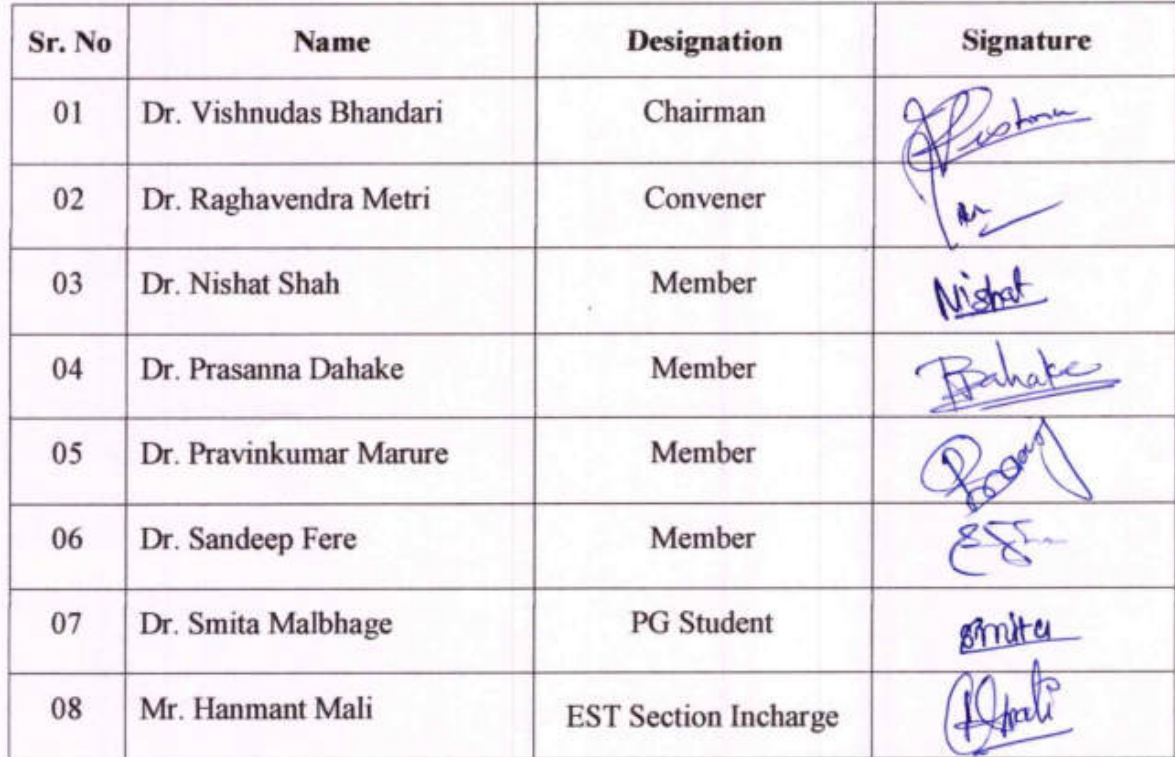 Sr. No Name Designation Signature
01 Dr. Vishnudas Bhandari Chairman
02 Dr. Raghavendra Metri Convener
03 Dr. Nishat Shah Member Nishat
04 Dr. Prasanna Dahake Member PDahake
05 Dr. Pravinkumar Marure Member
06 Dr. Sandeep Fere Member
07 Dr. Smita Malbhage PG Student Smita
08 Mr. Hanmant Mali EST Section Incharge